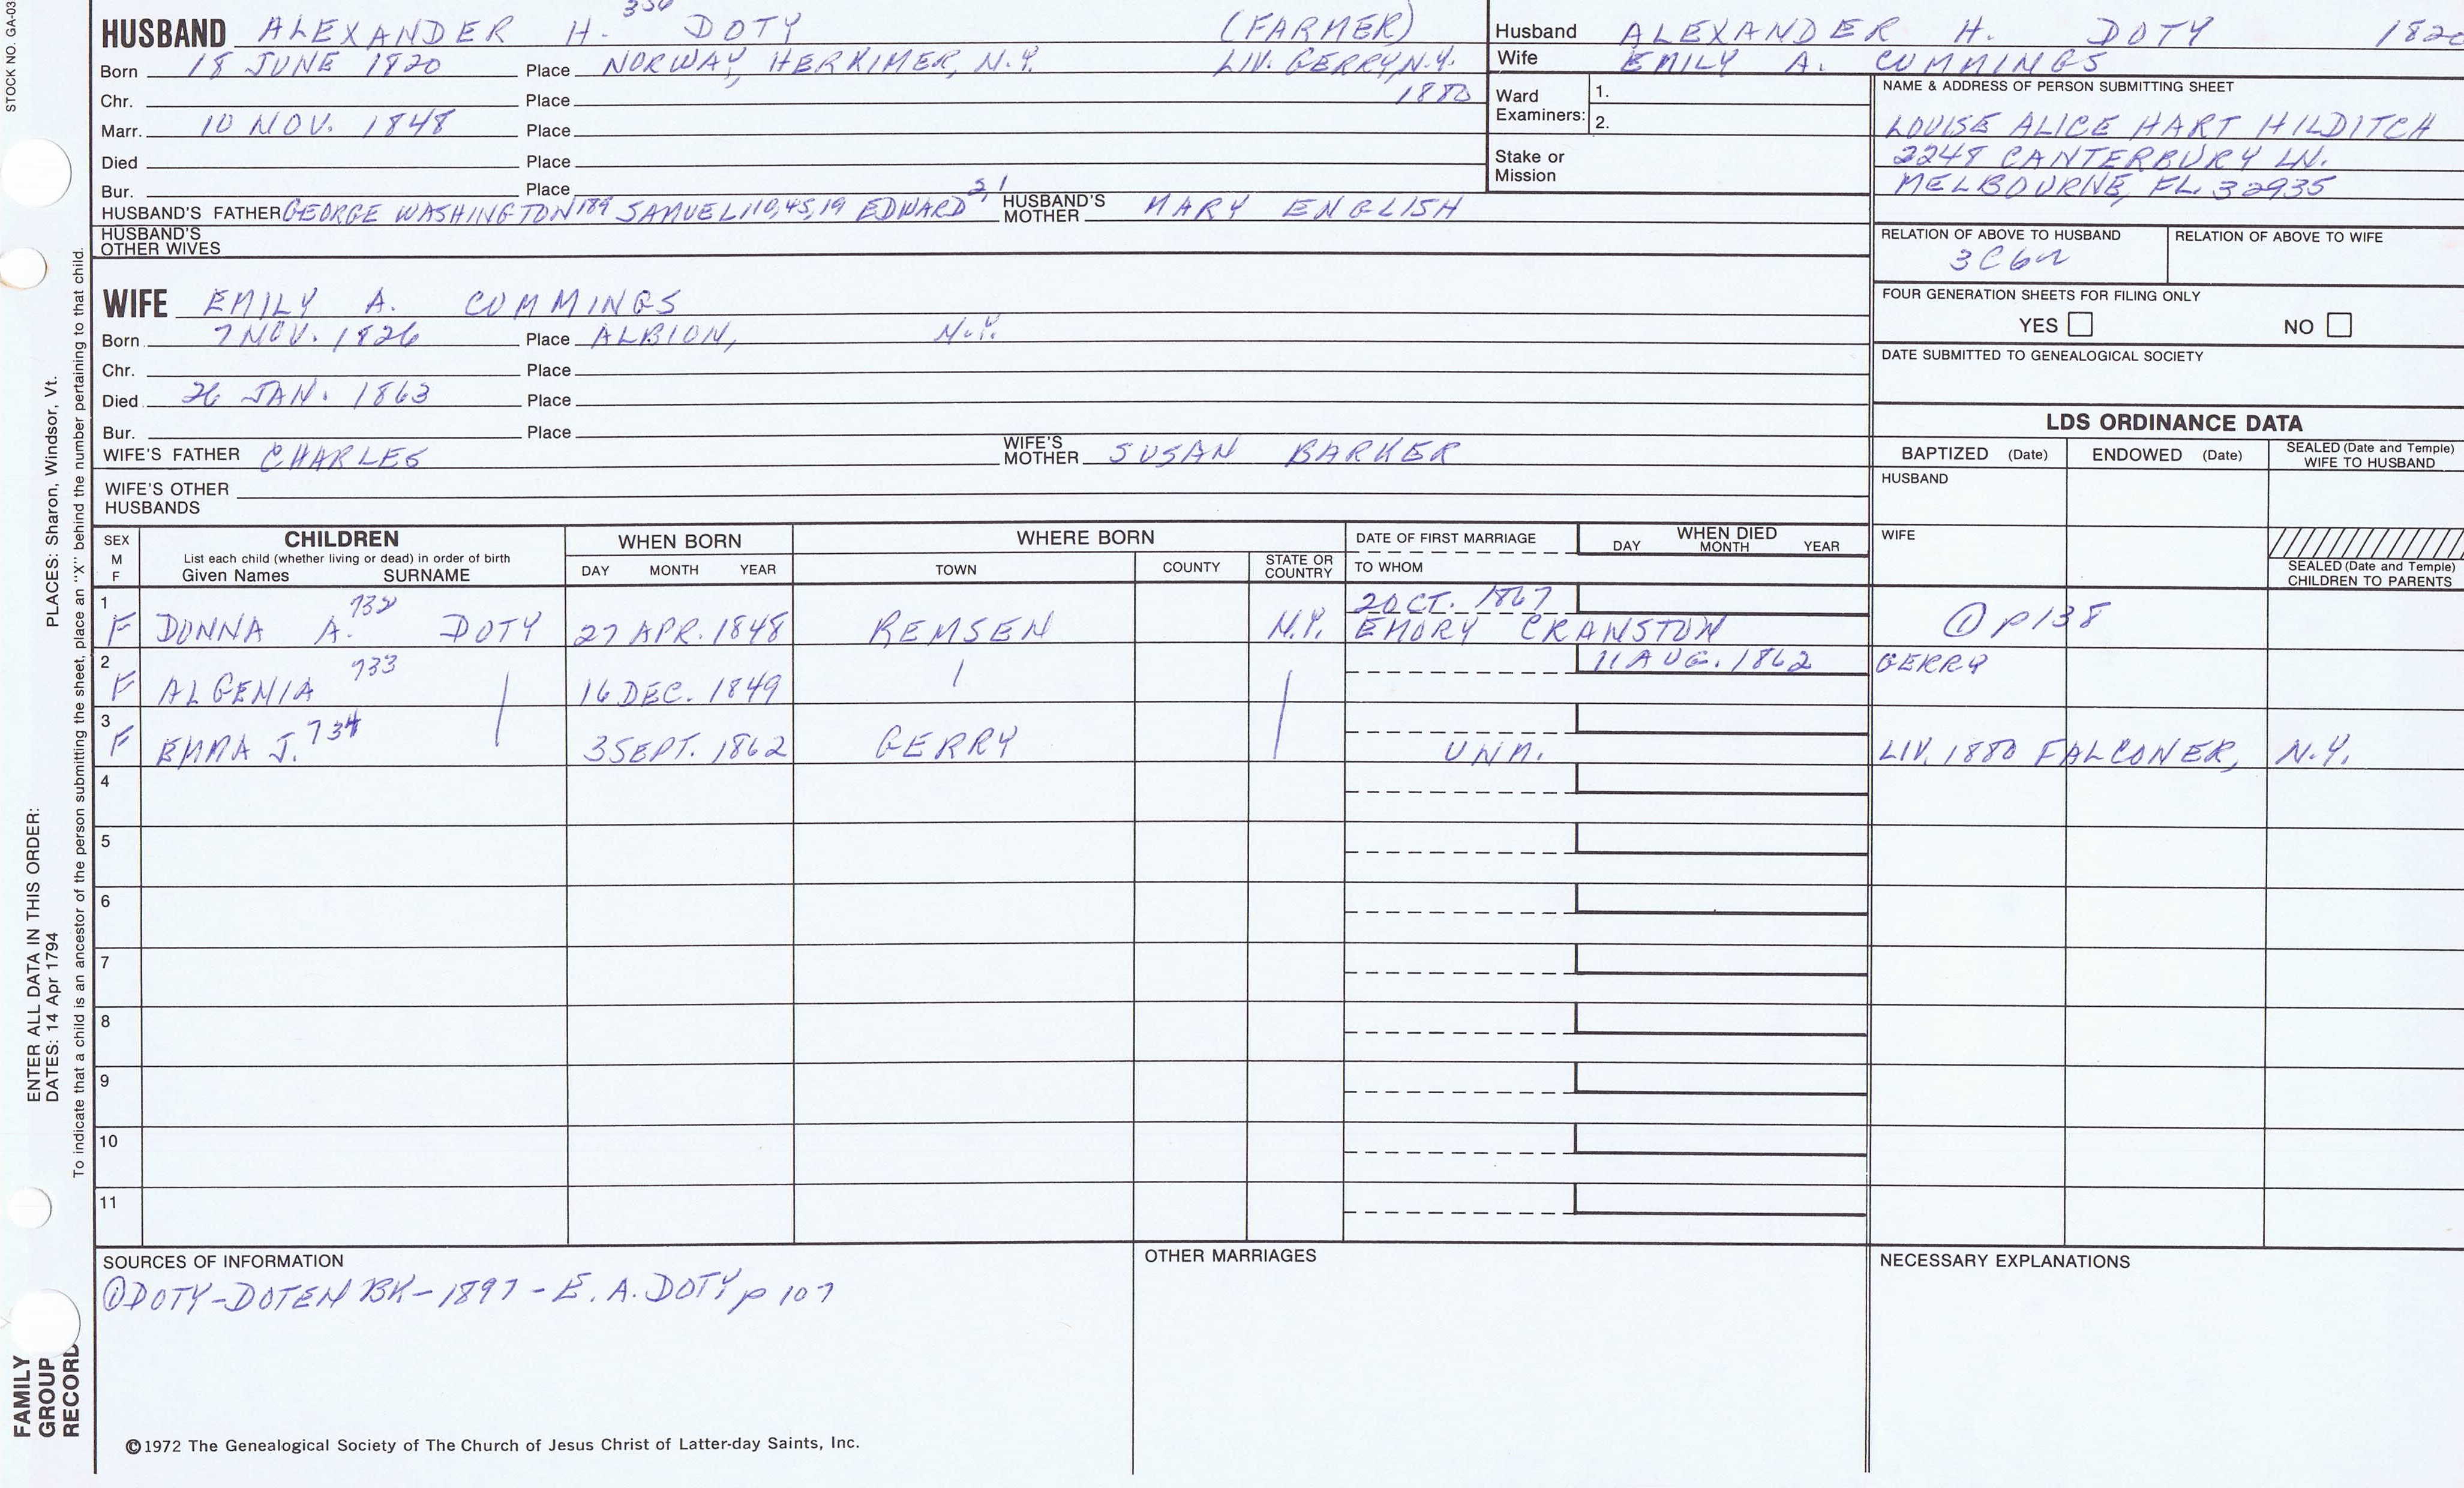 STOCK NO. GA-03
HUSBAND ALEXANDER H. 356 DOTY (FARMER)
Born 18 JUNE 1820 Place NORWAY, HERKIMER, N.Y. LIV. GERRY, N.Y.
Chr. Place 1880
Marr. 10 NOV. 1848 Place
Died Place
Bur. Place
HUSBAND'S FATHER GEORGE WASHINGTON 189 SAMUEL 110,45,19 EDWARD 21 HUSBAND'S MOTHER MARY ENGLISH
HUSBAND'S OTHER WIVES
WIFE EMILY A. CUMMINGS
Born 7 NOV. 1826 Place ALBION, N.Y.
Chr. Place
Died 26 JAN. 1863 Place
Bur. Place
WIFE'S FATHER CHARLES WIFE'S MOTHER SUSAN BARKER
WIFE'S OTHER HUSBANDS
Husband ALEXANDER H. DOTY 1820
Wife EMILY A. CUMMINGS
Ward Examiners: 1.
2.
Stake or Mission
NAME & ADDRESS OF PERSON SUBMITTING SHEET
LOUISE ALICE HART HILDITCH
2248 CANTERBURY LN.
MELBOURNE, FL. 32935
RELATION OF ABOVE TO HUSBAND RELATION OF ABOVE TO WIFE
3C6R
FOUR GENERATION SHEETS FOR FILING ONLY
YES NO
DATE SUBMITTED TO GENEALOGICAL SOCIETY
LDS ORDINANCE DATA
BAPTIZED (Date) ENDOWED (Date) SEALED (Date and Temple) WIFE TO HUSBAND
HUSBAND
WIFE
SEALED (Date and Temple) CHILDREN TO PARENTS
SEX M F CHILDREN WHEN BORN WHERE BORN DATE OF FIRST MARRIAGE WHEN DIED
List each child (whether living or dead) in order of birth DAY MONTH YEAR
Given Names SURNAME DAY MONTH YEAR TOWN COUNTY STATE OR COUNTRY TO WHOM
1 F DONNA A. 732 DOTY 27 APR. 1848 REMSEN N.Y. 2 OCT. 1867 EMORY CRANSTON ① p138
2 F ALGENIA 733 | 16 DEC. 1849 | | 11 AUG. 1862 GERRY
3 F EMMA J. 734 3 SEPT. 1862 GERRY UNM. LIV. 1880 FALCONER, N.Y.
4
5
6
7
8
9
10
11
SOURCES OF INFORMATION
① DOTY-DOTEN BK-1897-E. A. DOTY p 107
OTHER MARRIAGES
NECESSARY EXPLANATIONS
©1972 The Genealogical Society of The Church of Jesus Christ of Latter-day Saints, Inc.
FAMILY
GROUP
RECORD
ENTER ALL DATA IN THIS ORDER:
DATES: 14 Apr 1794 PLACES: Sharon, Windsor, Vt.
To indicate that a child is an ancestor of the person submitting the sheet, place an "X" behind the number pertaining to that child.